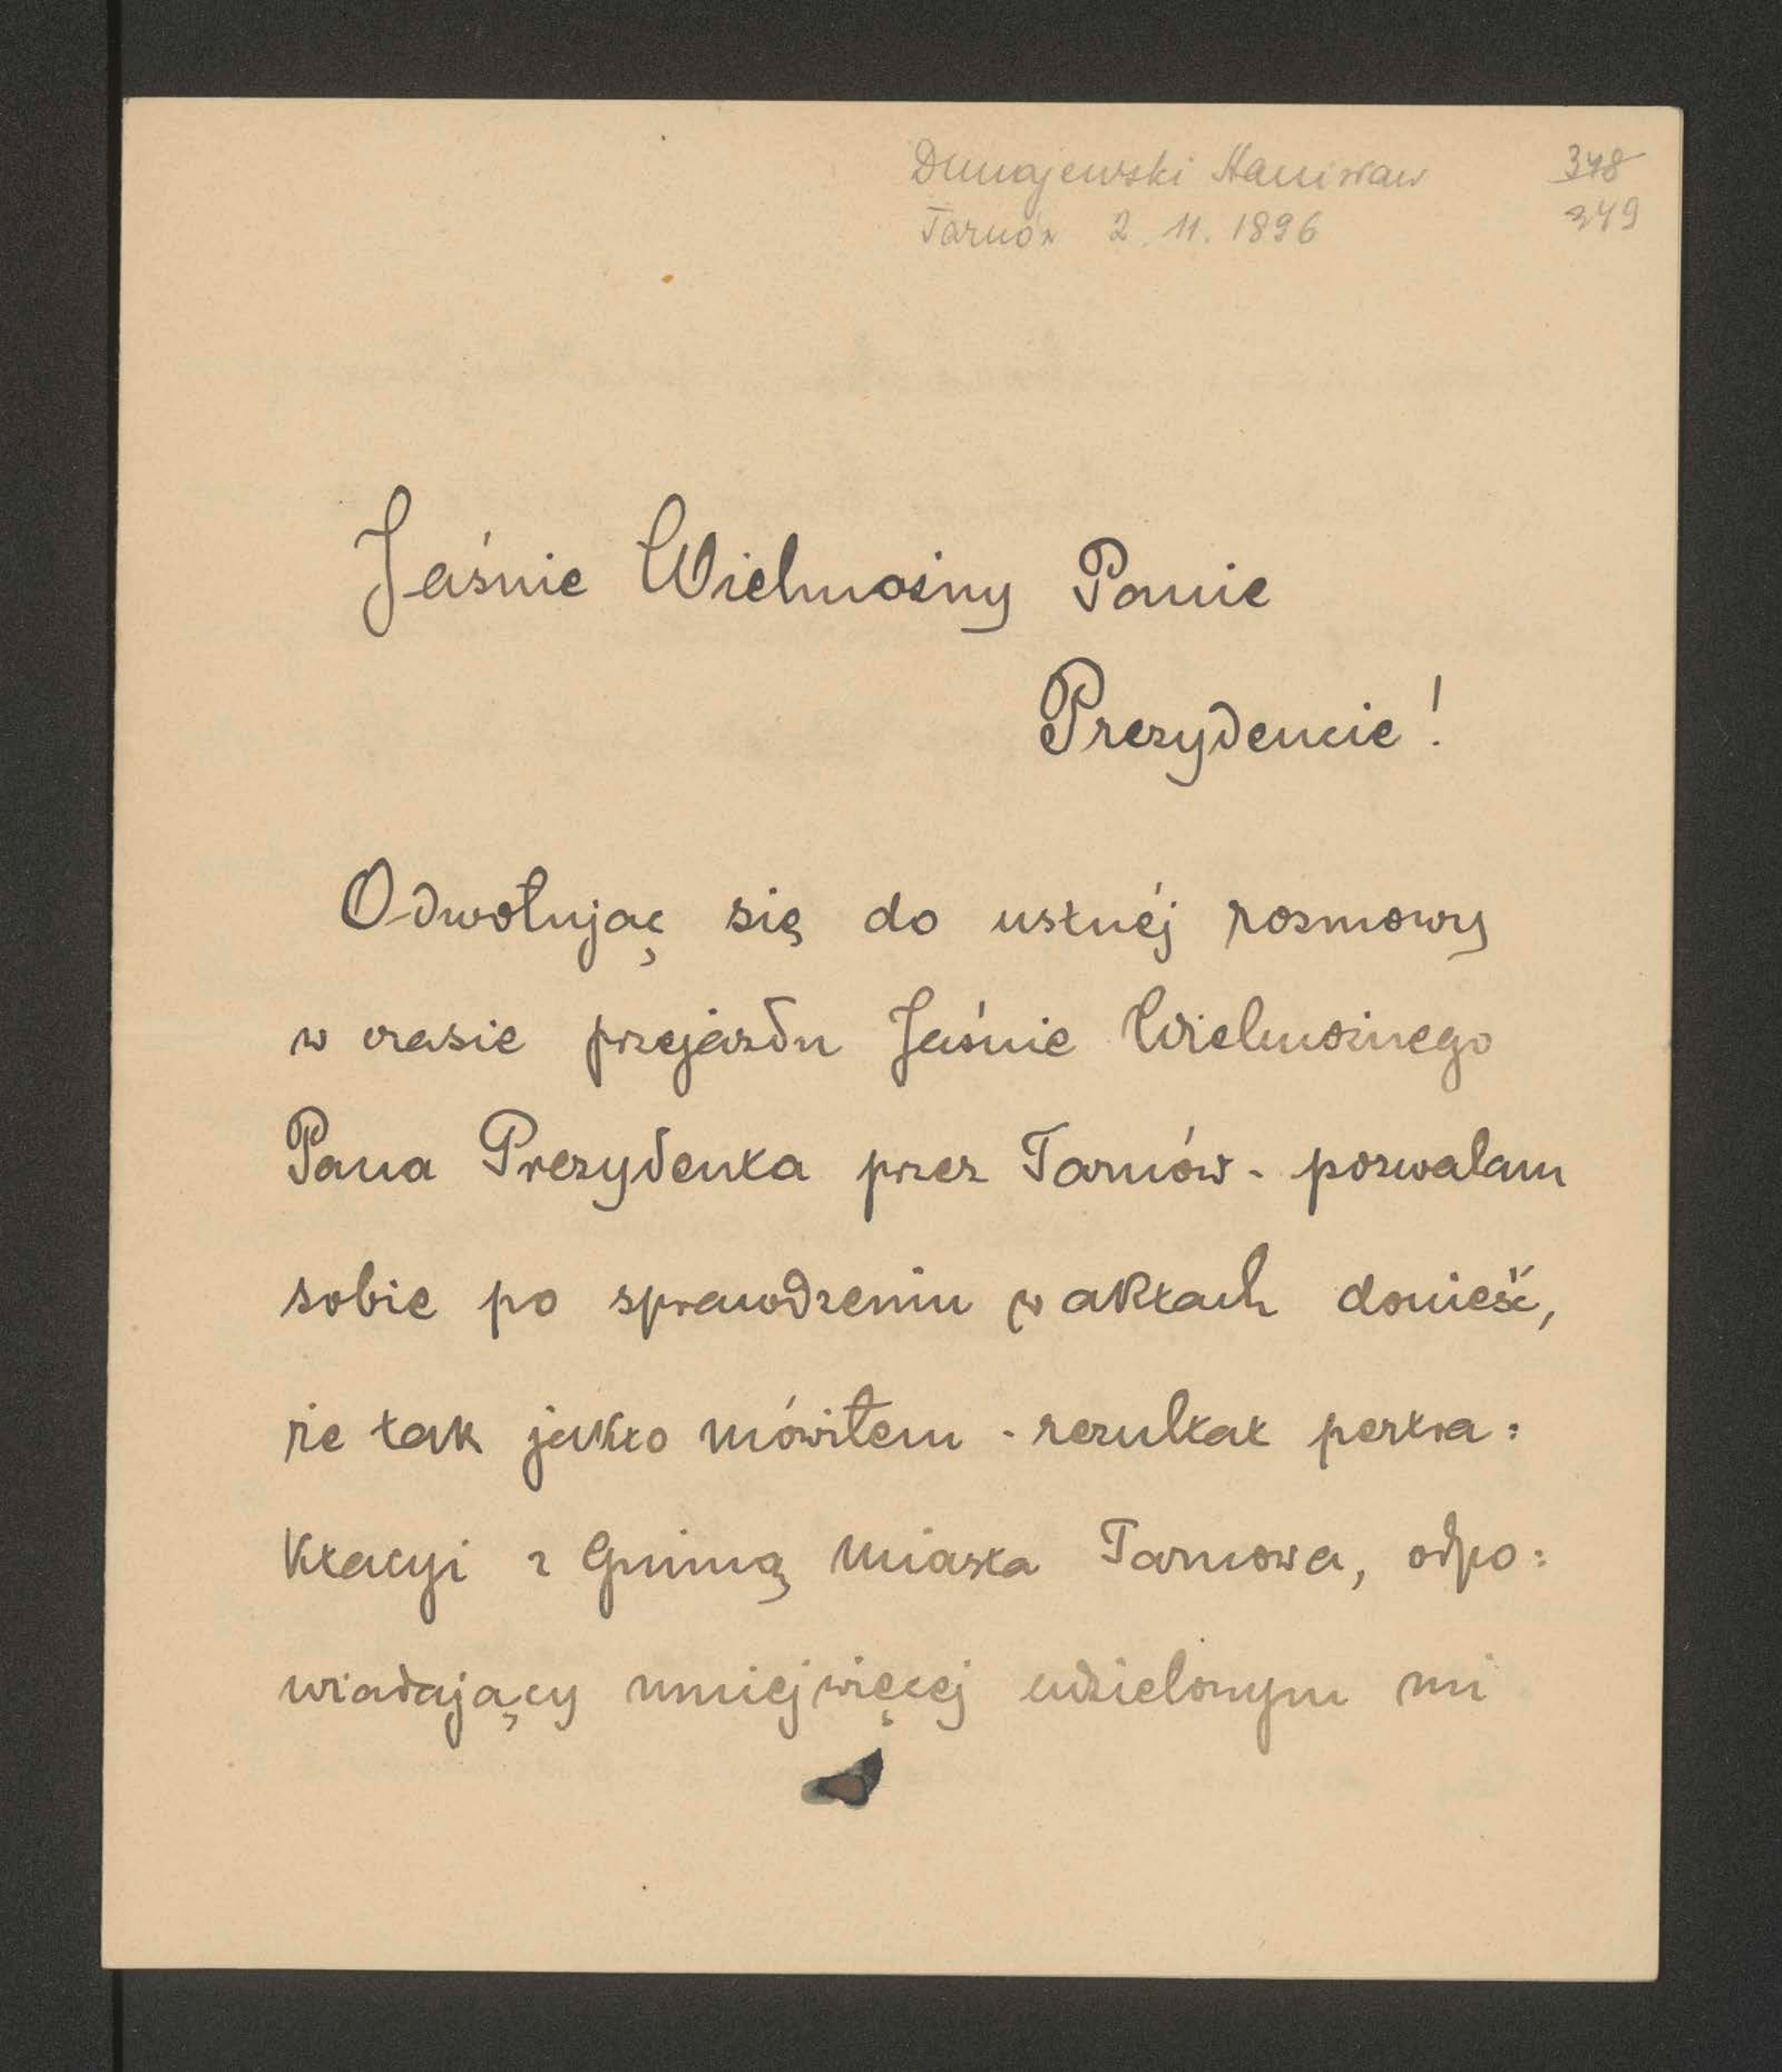 Dunajewski Stanisław 348
Tarnów 2. 11. 1896 349
Jaśnie Wielmożny Panie
Prezydencie!
Odwołując się do ustnéj rozmowy
w czasie przejazdu Jaśnie Wielmożnego
Pana Prezydenta przez Tarnów - pozwalam
sobie po sprawdzeniu w aktach donieść,
że tak jakto mówiłem - rezultat pertra:
ktacyi z Gminą miasta Tarnowa, odpo:
wiadający mniejwięcej udzielonym mi